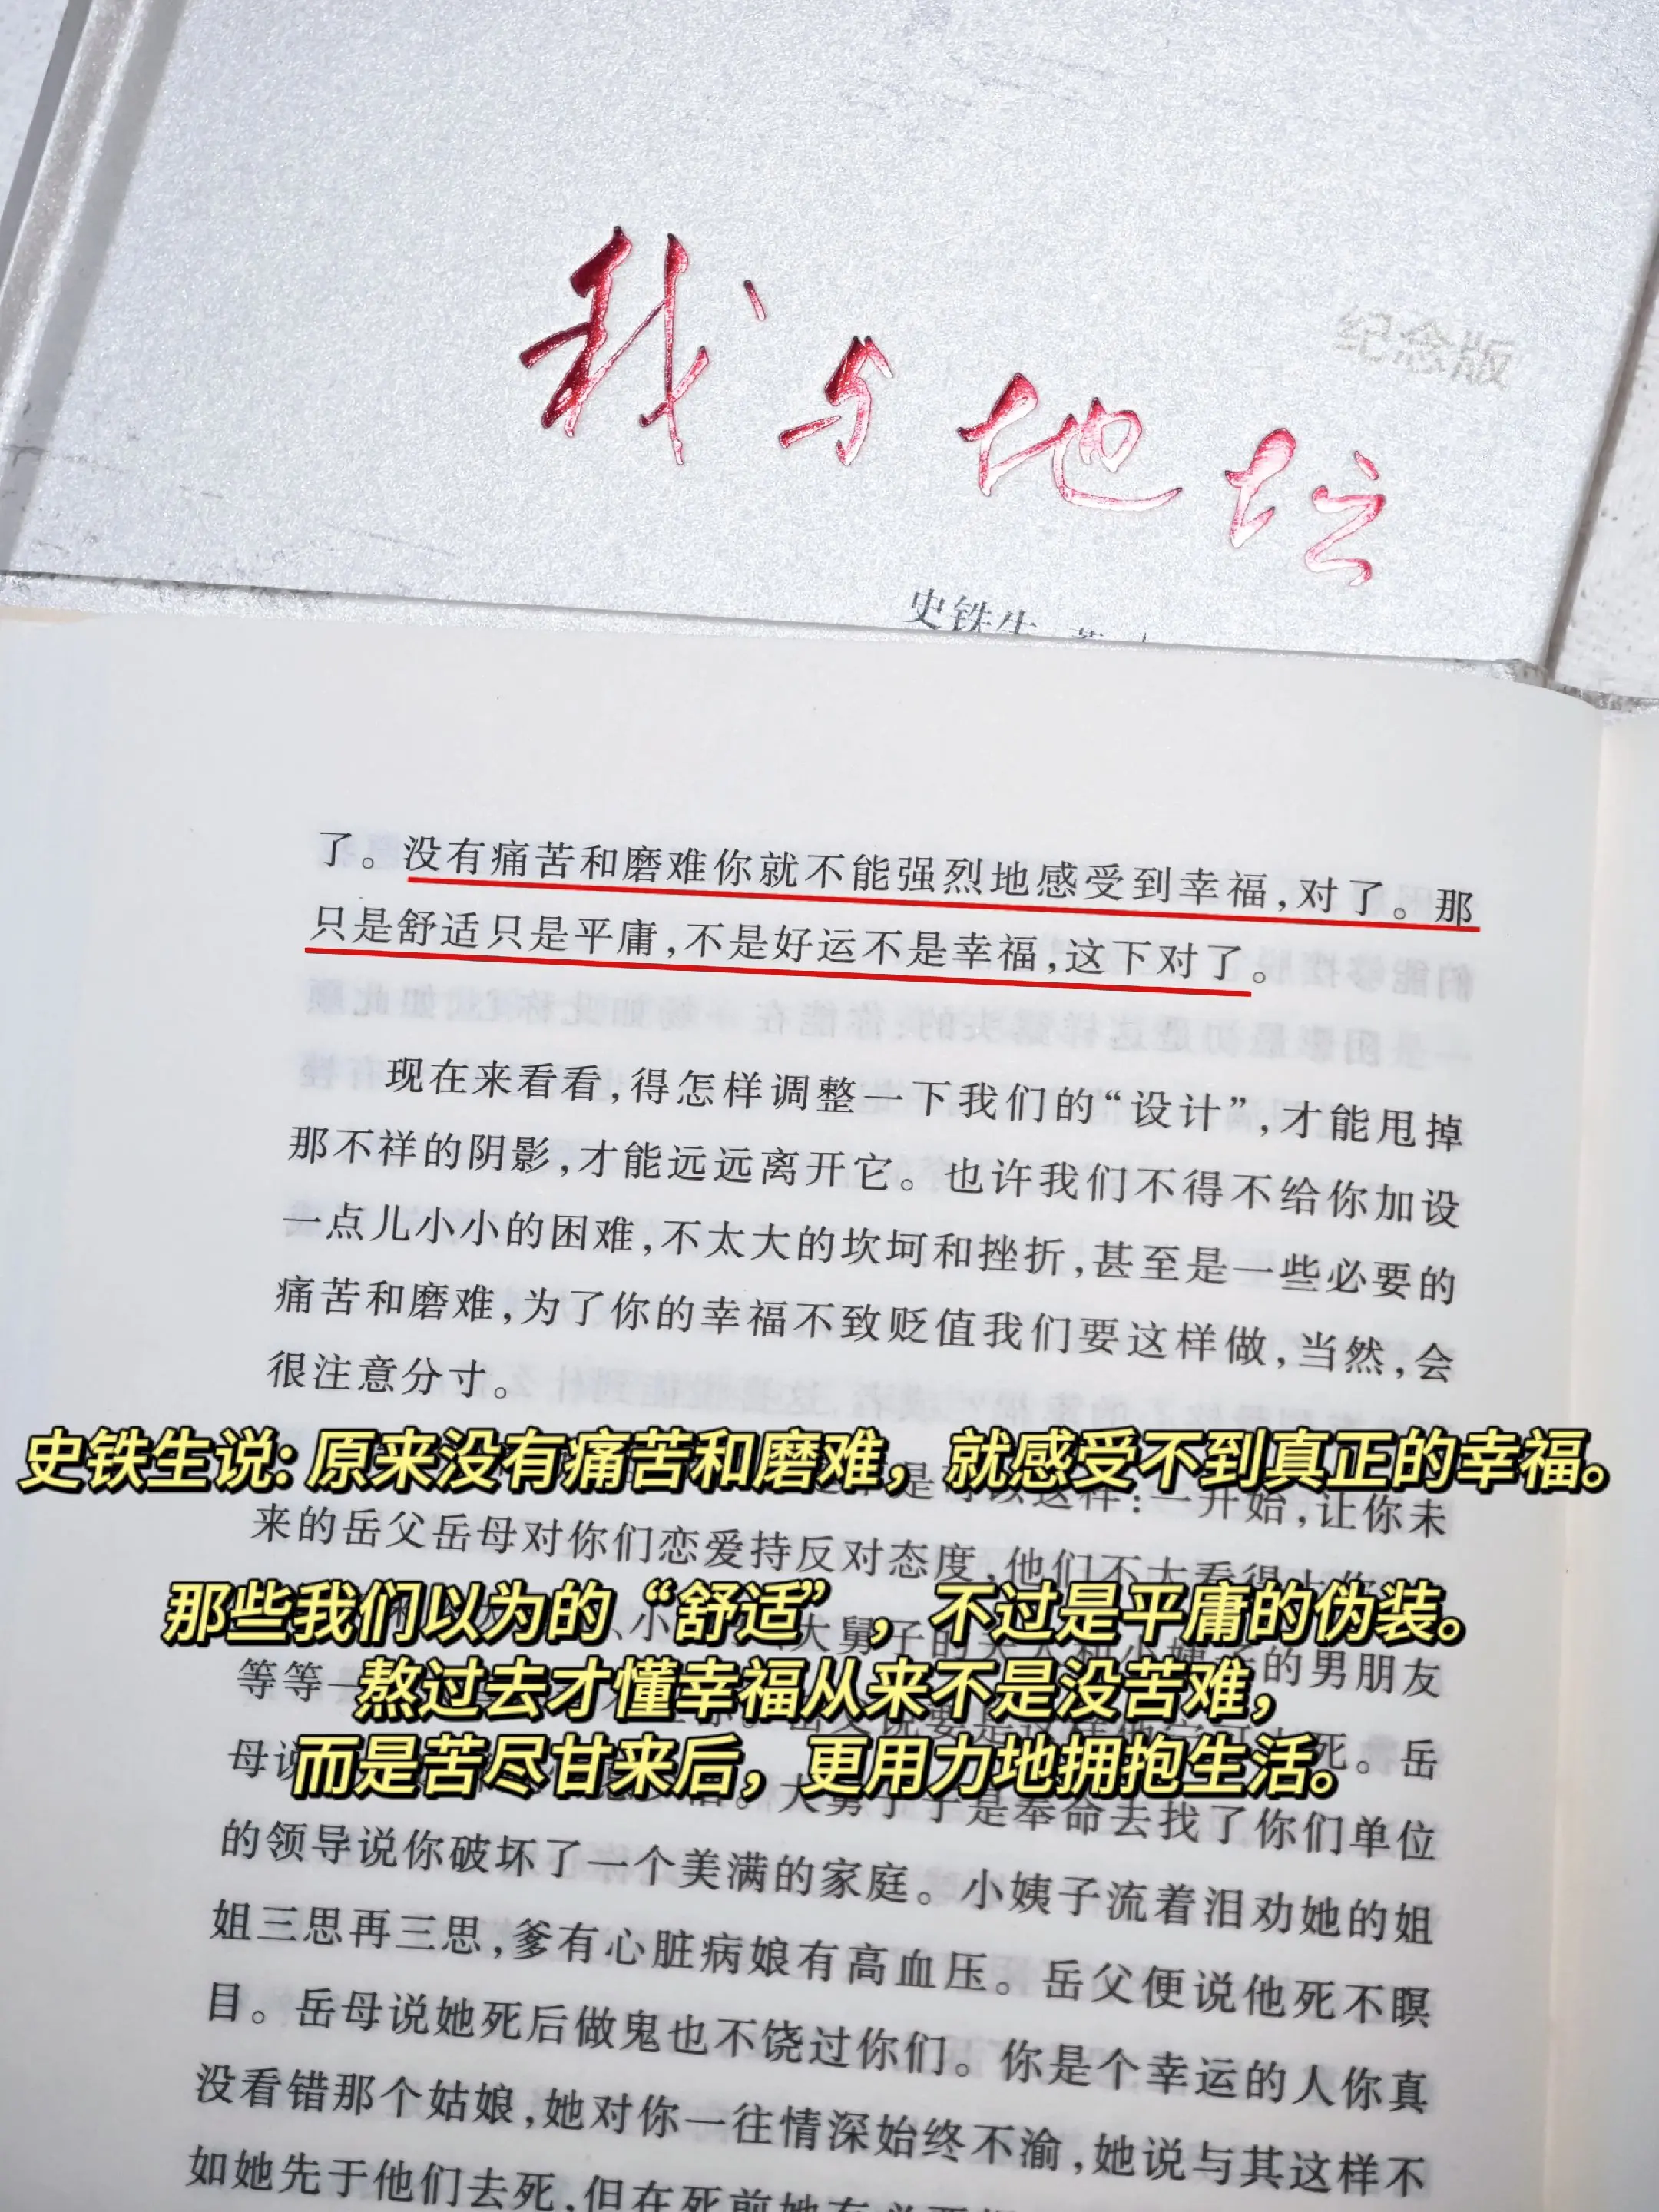 我与地坛
纪念版
史铁生
了。没有痛苦和磨难你就不能强烈地感受到幸福,对了。那
只是舒适只是平庸,不是好运不是幸福,这下对了。
现在来看看,得怎样调整一下我们的“设计”,才能甩掉
那不祥的阴影,才能远远离开它。也许我们不得不给你加设
一点儿小小的困难,不太大的坎坷和挫折,甚至是一些必要的
痛苦和磨难,为了你的幸福不致贬值我们要这样做,当然,会
很注意分寸。
史铁生说: 原来没有痛苦和磨难，就感受不到真正的幸福。
一开始,让你未
来的岳父岳母对你们恋爱持反对态度,他们不大看得上你
那些我们以为的“舒适”，不过是平庸的伪装。
的男朋友
等等一
熬过去才懂幸福从来不是没苦难，
死。岳
母说
而是苦尽甘来后，更用力地拥抱生活。
大舅子于是奉命去找了你们单位
的领导说你破坏了一个美满的家庭。小姨子流着泪劝她的姐
姐三思再三思,爹有心脏病娘有高血压。岳父便说他死不瞑
目。岳母说她死后做鬼也不饶过你们。你是个幸运的人你真
没看错那个姑娘,她对你一往情深始终不渝,她说与其这样不
如她先于他们去死,但在死前她